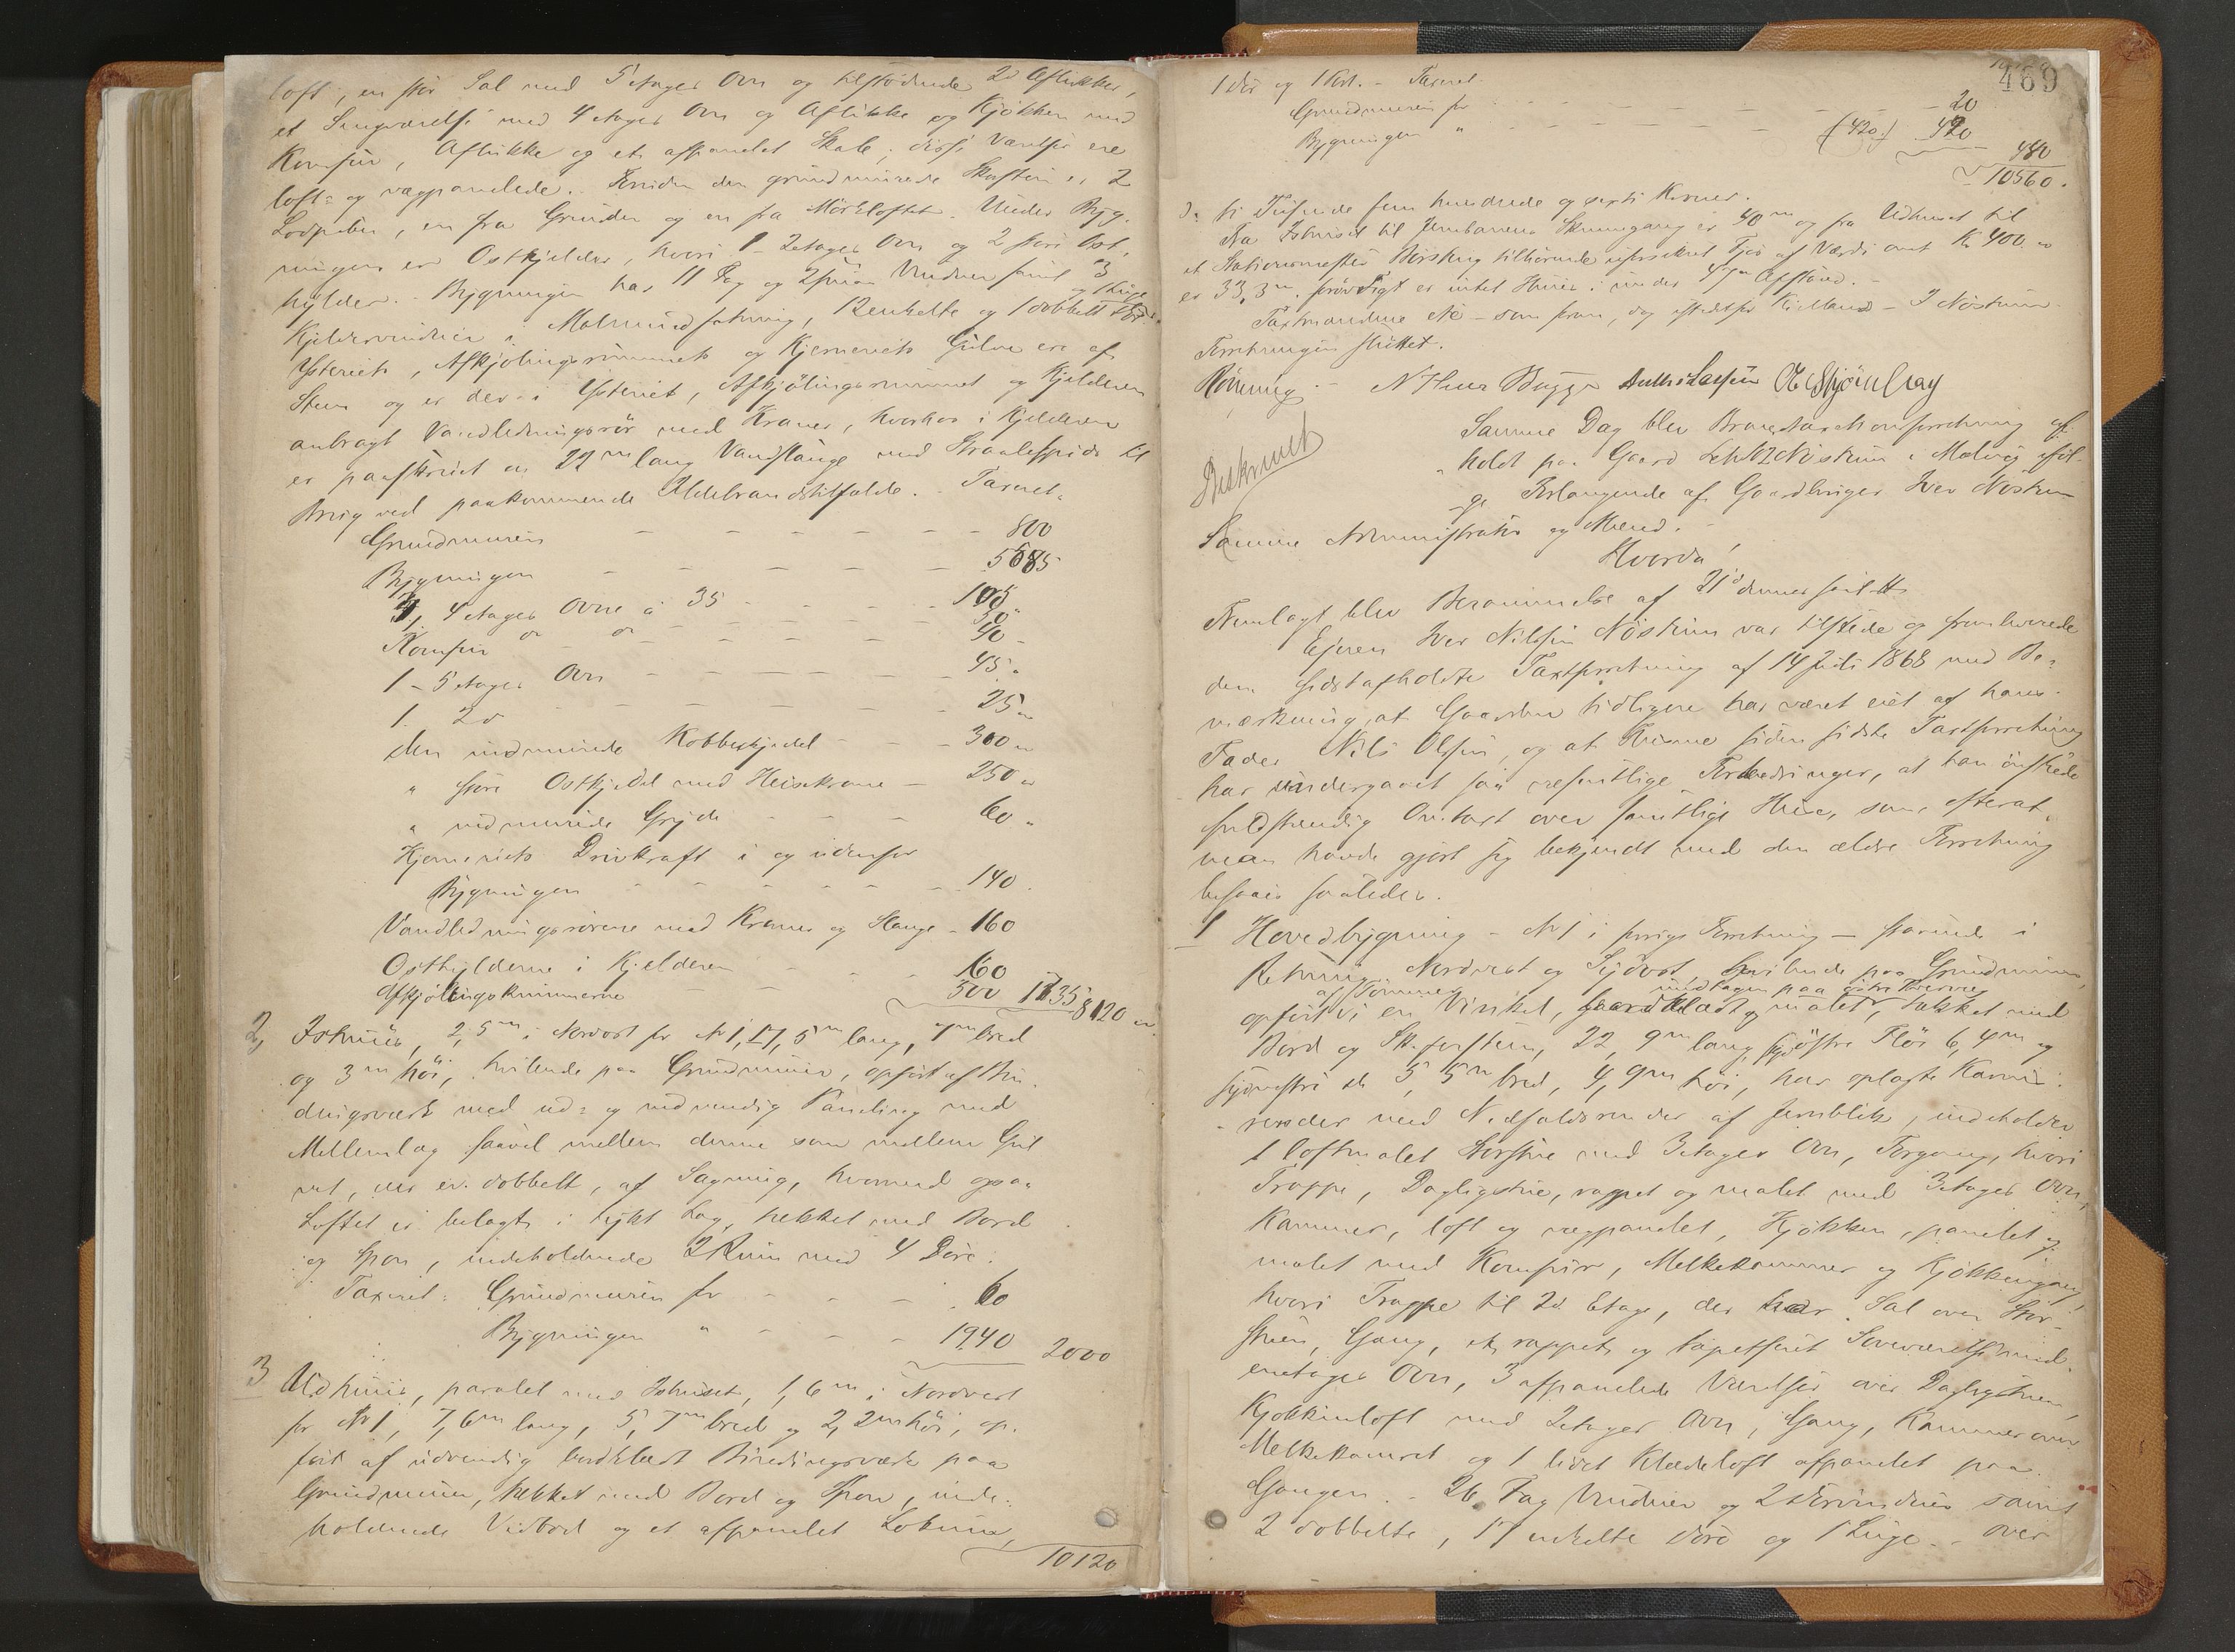 loft, en stor Sal med 5 etages Ovn og tilstødende 2 Aflukker,
et Sengværelse med 4 etages Ovn og Aflukke og Kjøkken med
Komfur, Aflukke og et afpanelet Skab; disse Værelser ere
loft- og vægpanelede. Foruden den grundmurede Skorsten er 2
Lodpiber, en fra Grunden og en fra Mørkloftet. Under Byg-
ningen er Ostkjelder, hvori 1 2 etages Ovn og 2 store Ost-
hylder. Bygningen har 11 Fag og Vinduer samt 3
Kjeldervinduer i Malmindfatning, 12 enkelte og 1 dobbelt Dør og 1 Luge
Ysteriets, Afkjølingsrummets og Kjerneriets Gulve ere af
Steen og er der i Ysteriet, Afkjølingsrummet og Kjelderen
anbragt Vandledningsrør med Kraner, hvorhos i Kjelderen
er paaskruet en 22 m lang Vandslange med Straalespids til
Brug ved paakommende Ildebrandstilfælde. Taxeret:
Grundmuren - - - - - - 800
Bygningen - - - - - - 5585
3, 4 etages Ovne à 35 - - - 105
Komfur - - - - 40 -
1 - 5 etages Ovn - - - - - 45 "
1 2 do - - - - - - 25 "
den indmurede Kobberkjedel - - - 300 "
" store Ostkjedel med Heisekrane - 250 "
" indmurede Gryde - - - 60 "
Kjerneriets Drivkraft i og udenfor
Bygningen - - - - - - 140
Vandledningsrørene med Kraner og Slange - 160
Osthylderne i Kjelderen - - - 160
Afkjølingskummerne - - 300 1735 8120
2, Ishuus, 2,5 m i Nordost for No 1, 17,5 m lang, 7 m bred
og 3 m høi, hvilende paa Grundmuur, opført af Bin-
dingsværk med ud- og indvendig Paneling med
Mellemlag saavel mellem denne som mellem Gul-
vet, der er dobbelt, af Sagmug, hvormed ogsaa
Loftet er belagt i tykt Lag, tækket med Bord
og Spon, indeholdende 2 Rum med 4 Døre.
Taxeret: Grundmuren for - - - 60
Bygningen " - - - 1940 2000
3 Udhuus, paralel med Ishuset, 1,6 m i Nordvest
for No 1, 7,6 m lang, 5,7 m bred og 2,2 m høi, op-
ført af udvendig bordklædt Bindingsværk paa
Grundmuur, tækket med Bord og Spon, inde-
holdende Vedbod og et afpanelet Lokum,
10120
469
1 Dør og 1 - Taxeret
Grundmuren for - - - - - - 20
Bygningen " - - - - - (420.) 420
480
10560.
ti Tusinde fem hundrede og sexti Kroner.
Fra Ishuset til Jernbanens Skinnegang er 40 m og fra Udhuset til
et Stationsmester Borshug tilhørende uassureret Fjøs af Værdi omt Kr 400
er 33,3 m. forøvrigt er intet Huus i under Afstand. -
Taxtmændene - som foran, dog istedetfor Kielland - I Nøstum
Forretningen sluttet.
Rønning - N Huus Bugge
Samme Dag blev Brandtaxationsforretning af-
holdt paa Gaard Nøstum i Malvig ifølge
Forlangende af Gaardbruger Iver Nøstum
Samme Administrator og Mænd. -
Hvorda!
Beskrevet
Fremlagt blev Berammelse af 21de dennes
Ejeren Iver Nilssen Nøstum var tilstede og fremleverede
den sidstafholdte Taxtforretning af 14 Juli 1868 med Be-
mærkning, at Gaarden tidligere har været eiet af hans
Fader Nils Olsen, og at Husene siden sidste Taxtforretning
har undergaaet saa væsentlige Forbedringer, at han ønskede
fuldstændig Omtaxt over samtlige Huse, som efterat
man havde gjort sig bekjendt med den ældre Forretning
befares saaledes.
1 Hovedbygning - No 1 i forrige Forretning - staaende i
Retning Nordvest og Sydost, hvilende paa Grundmuur,
opført af Tømmer i en Vinkel, bordklædt og malet, undtagen paa østre Tvervæg, tækket med
Bord og Skifersteen, 22,9 m lang, østre Fløi 6,4 m og
sydvestre do 5,5 m bred, 4,9 m høi, har oplagte Karnis-
render med Nedfaldsrender af Jernblik, indeholder
1 loftmalet Storstue med 3 etages Ovn, Forgang, hvori
Trappe, Dagligstue, rappet og malet med 3 etages Ovn,
Kammer, loft og vægpanelet, Kjøkken, panelet og
malet med Komfur, Melkekammer og Kjøkkengang,
hvori Trappe til 2d Etage, der har Sal over Stor-
stuen, Gang, et rappet og tapetseret Soveværelse med
enetages Ovn, 3 afpanelede Værelser over Dagligstuen,
Kjøkkenloft med 2 etages Ovn, Gang, Kammer over
Melkekamret og 1 lidet Klædeloft afpanelet paa
Gangen. - 26 Fag Vinduer og 2 Dørvinduer samt
2 dobbelte, 17 enkelte Døre og 1 Luge. - over